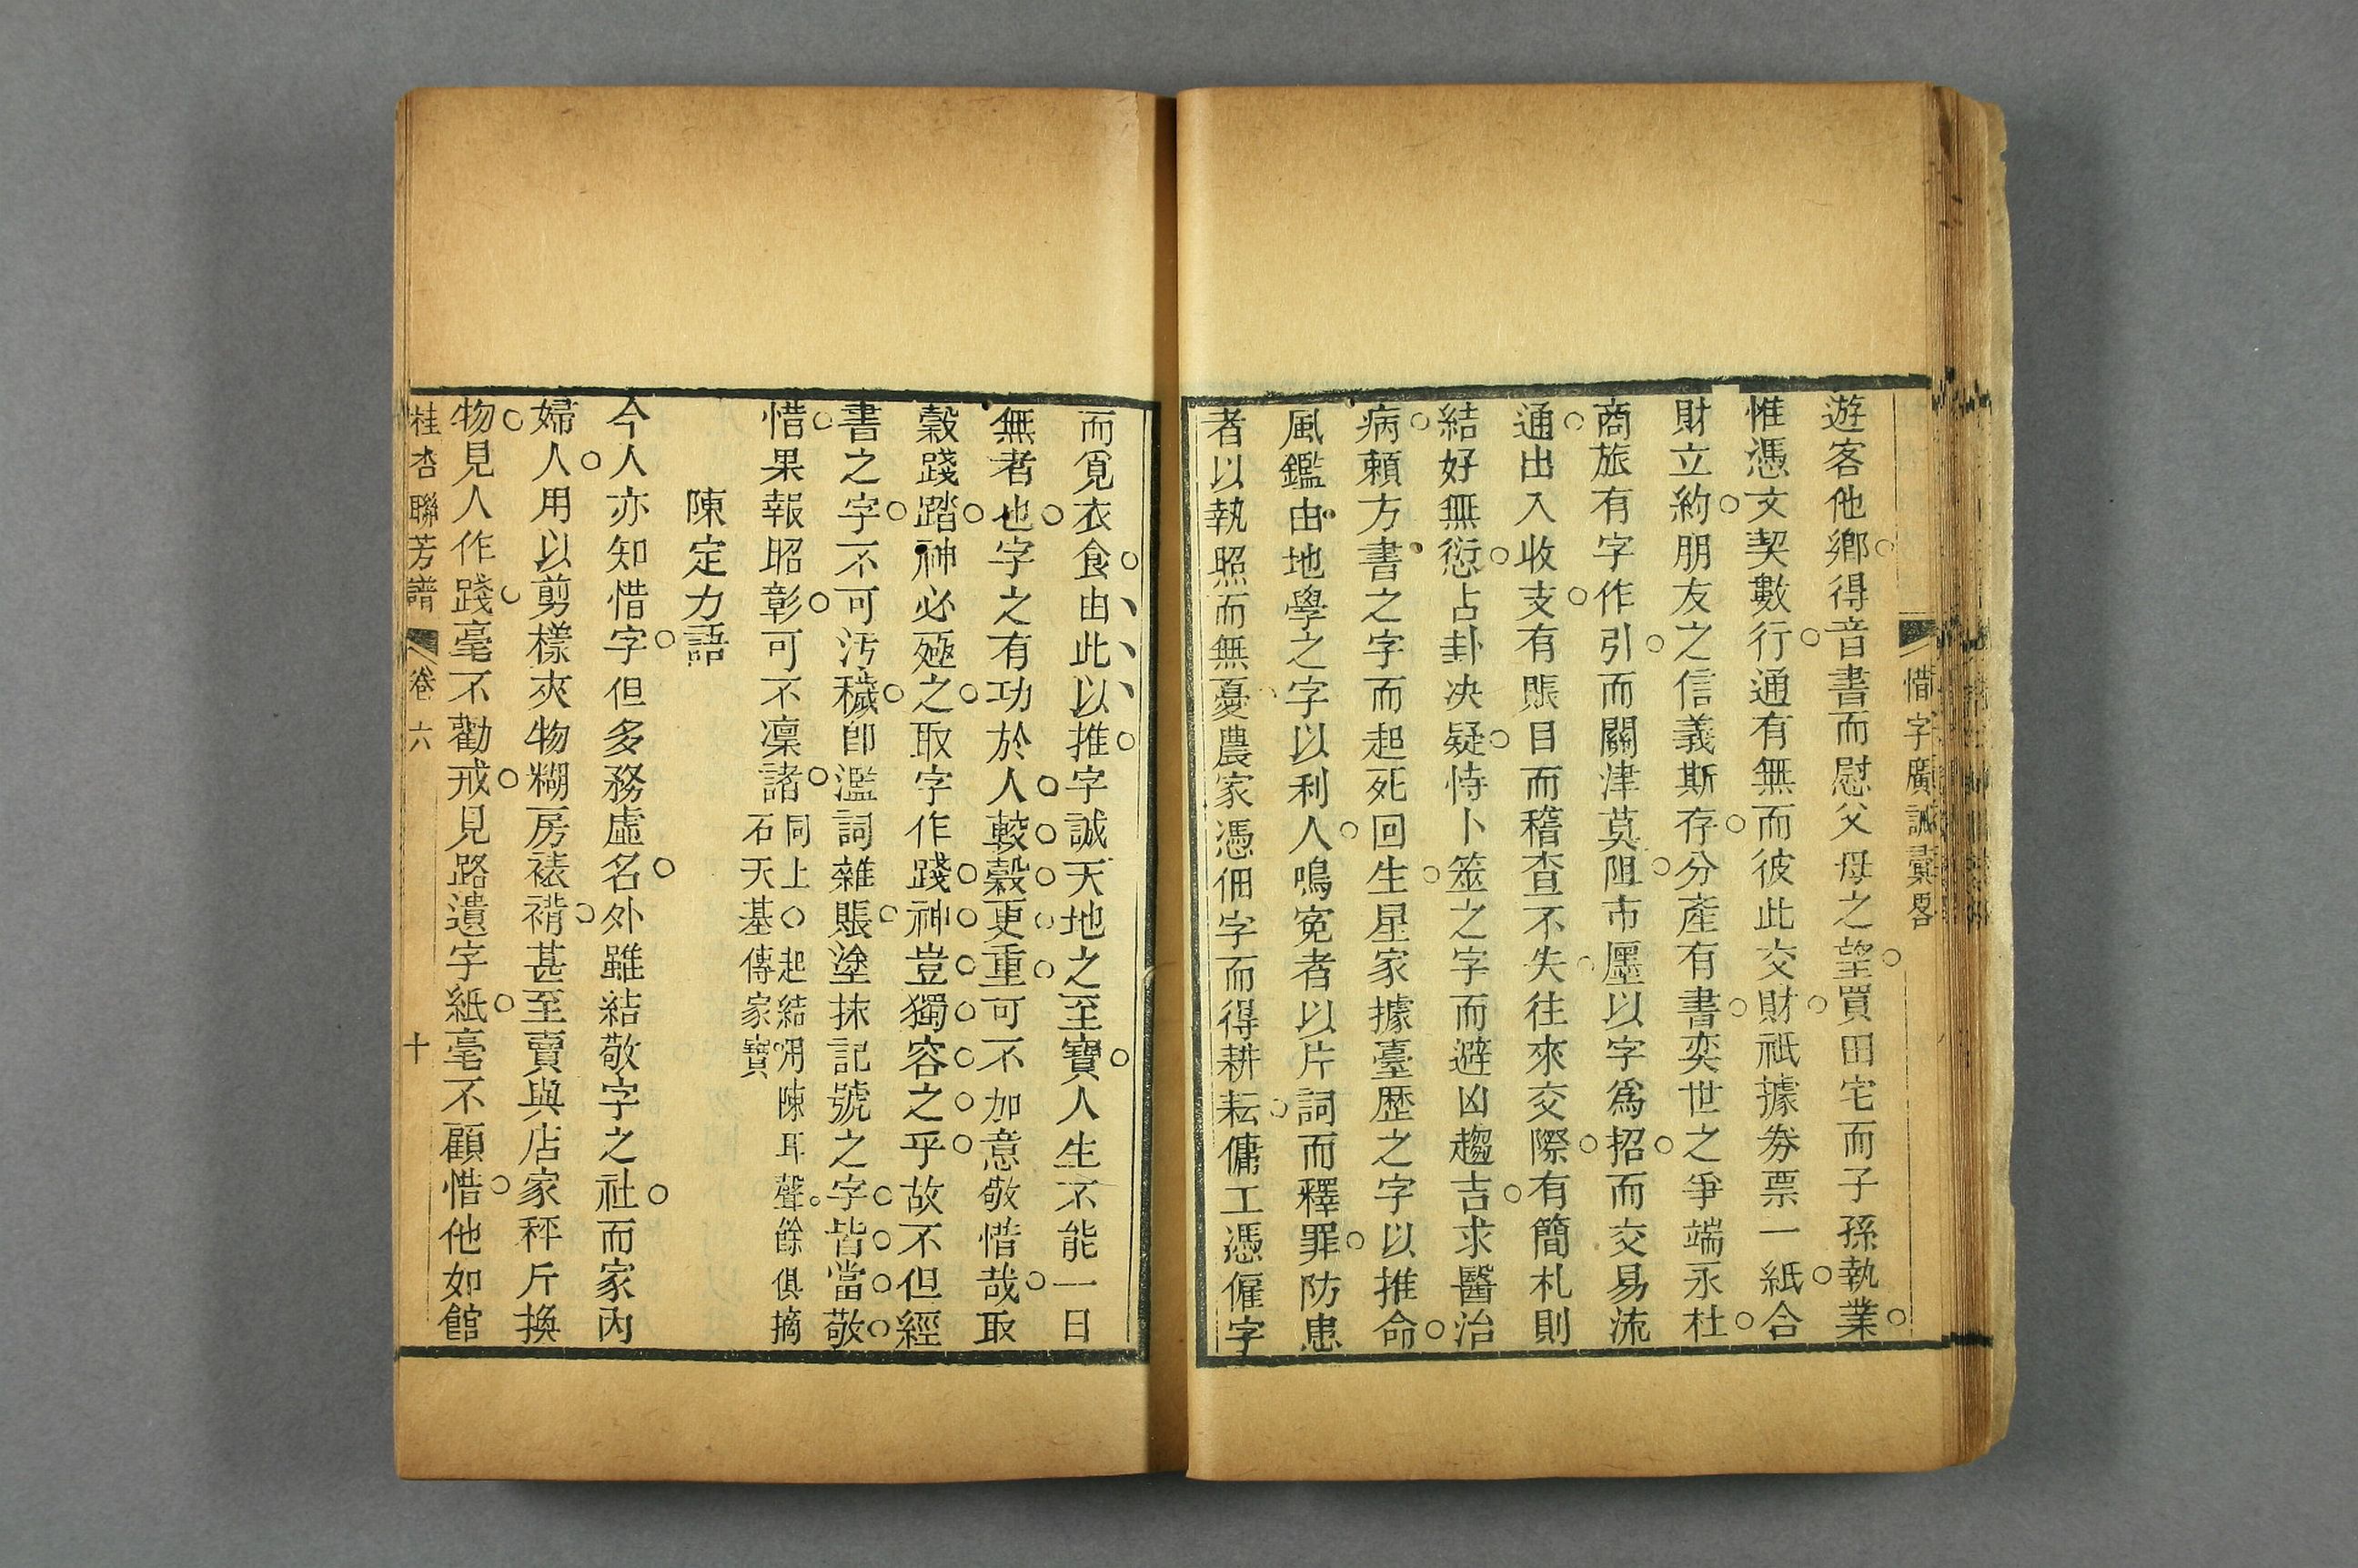 惜字廣誠彙畧
遊客他鄉得音書而慰父母之望買田宅而子孫執業
惟憑文契數行通有無而彼此交財祇據券票一紙合
財立約朋友之信義斯存分產有書奕世之爭端永杜
商旅有字作引而關津莫阻市廛以字爲招而交易流
通出入收支有賬目而稽查不失往來交際有簡札則
結好無愆占卦决疑恃卜筮之字而避凶趨吉求醫治
病賴方書之字而起死回生星家據臺歷之字以推命
風鑑由地學之字以利人鳴寃者以片詞而釋罪防患
者以執照而無憂農家憑佃字而得耕耘傭工憑僱字
而覓衣食由此以推字誠天地之至寶人生不能一日
無者也字之有功於人較穀更重可不加意敬惜哉取
穀踐踏神必殛之取字作踐神豈獨容之乎故不但經
書之字不可汚穢卽濫詞雜賬塗抹記號之字皆當敬
惜果報昭彰可不凜諸
同上○起結用陳耳聲餘俱摘
石天基傳家寶
陳定力語
今人亦知惜字但多務虛名外雖結敬字之社而家內
婦人用以剪樣夾物糊房裱褙甚至賣與店家秤斤換
物見人作踐毫不勸戒見路遺字紙毫不顧惜他如館
桂杏聯芳譜 卷六 十